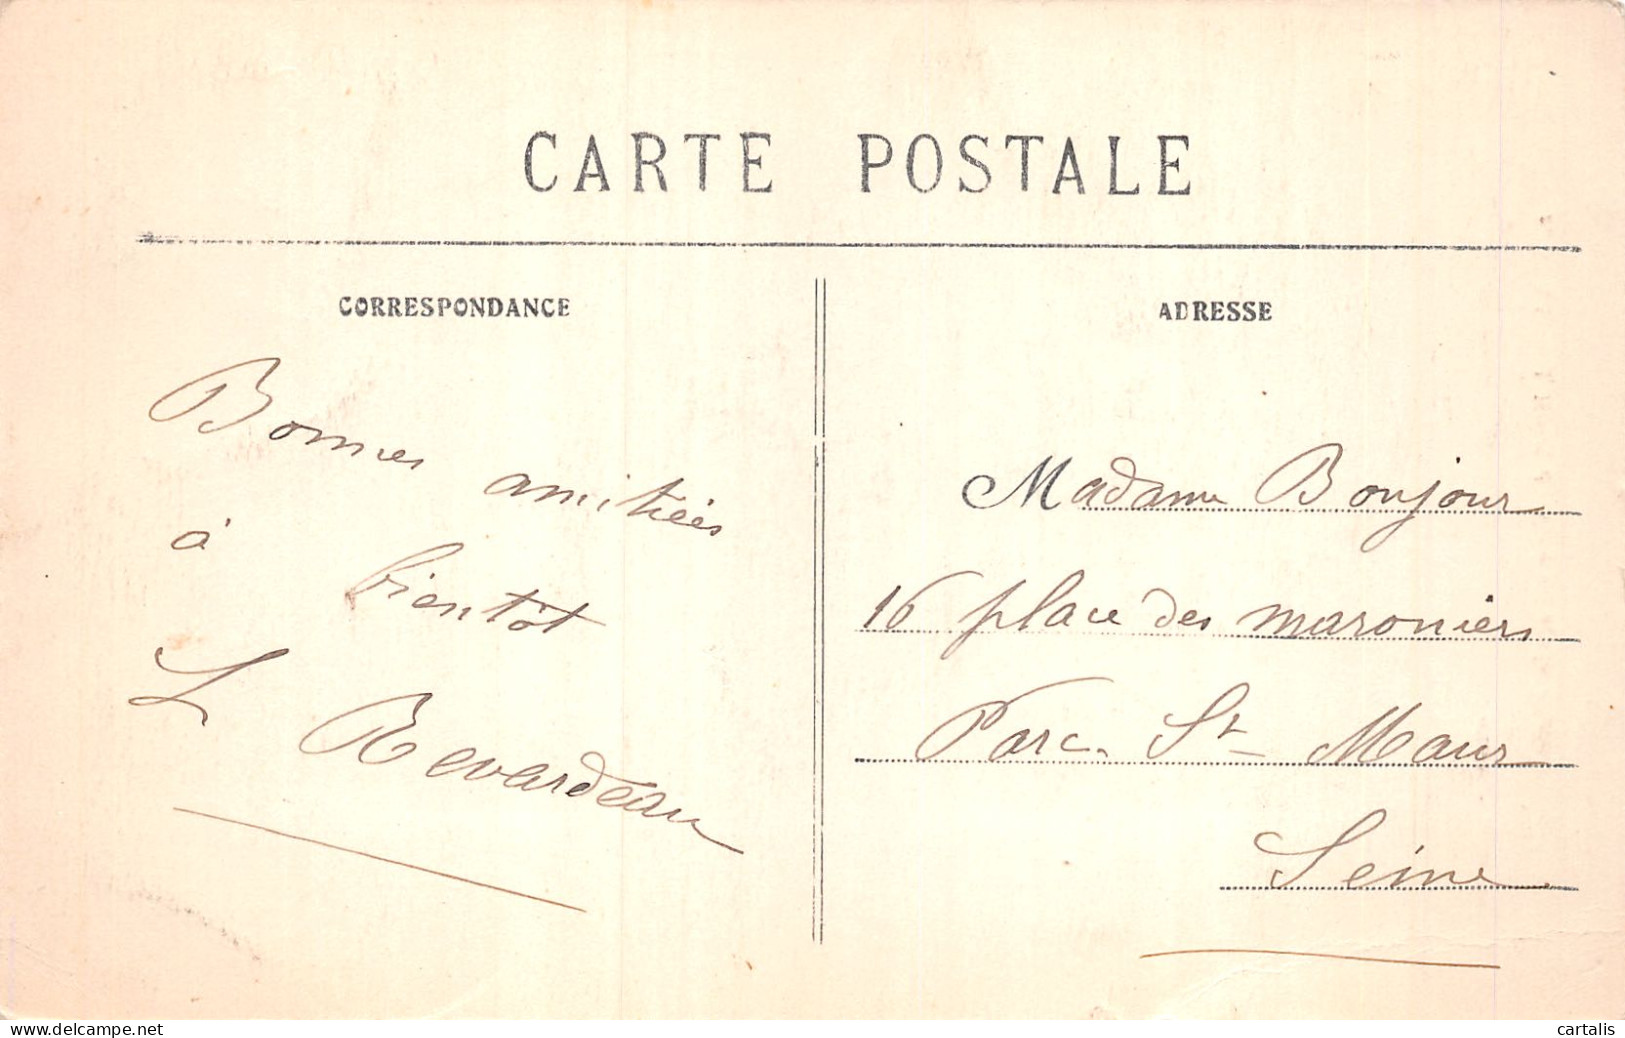 CARTE POSTALE
CORRESPONDANCE
Bonnes amitiées
à bientôt
L Revardeau
ADRESSE
Madame Bonjour
16 place des maroniers
Parc St Maur
Seine
www.delcampe.net
cartalis